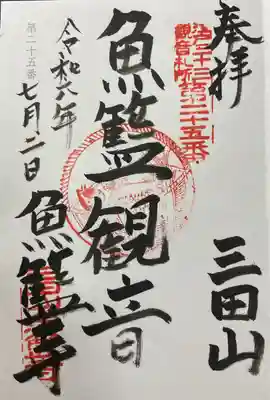 奉拝
三田山
江戸三十三
観音札所第二十五番
魚籃観音
令和六年
七月二日
魚籃寺
第二十五番